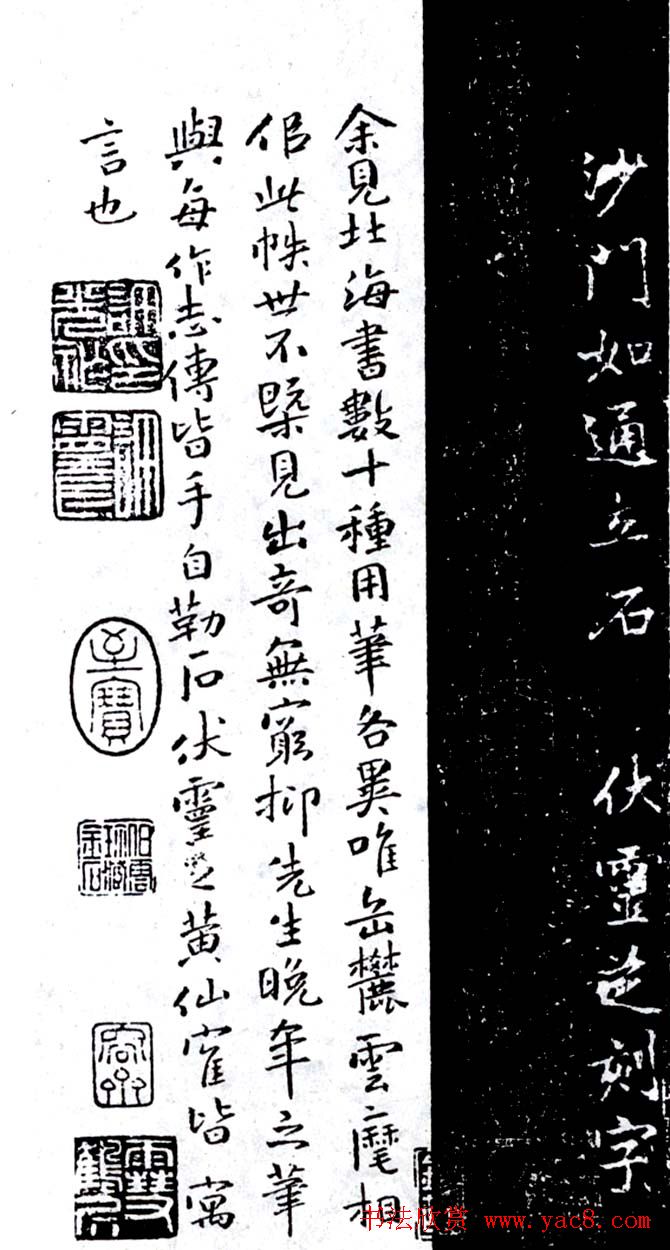 沙門如通立石 伏靈芝刻字
余見北海書數十種用筆各異唯岳麓雲麾相
侶此帙世不槩見出奇無窮抑先生晚年之筆
與每作志傳皆手自勒石伏靈芝黃仙霍皆寓
言也
至寶
书法欣赏 www.yac8.com